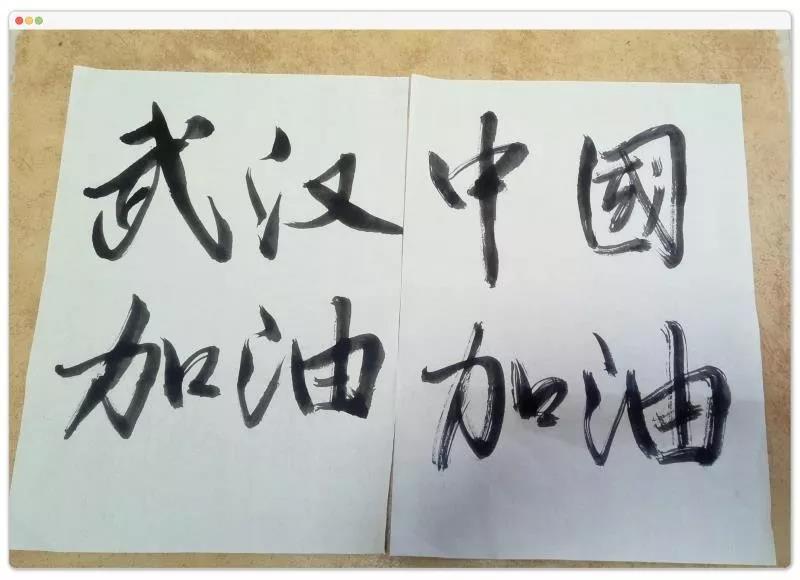 武汉
加油
中國
加油